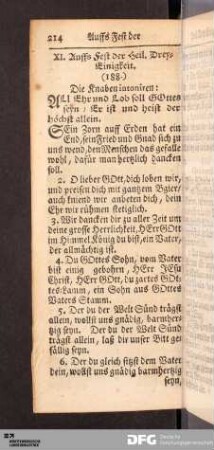 214 Auffs Fest der
XI. Auffs Fest der Heil. Drey-
Einigkeit.
(188.)
Die Knaben intoniren:
All Ehr und Lob soll GOttes
seyn, Er ist und heist der
höchst allein.
SEin Zorn auff Erden hat ein
End, sein Fried und Gnad sich zu
uns wend, den Menschen das gefalle
wohl, dafür man hertzlich dancken
soll.
2. O lieber GOtt, dich loben wir,
und preisen dich mit gantzer Bgier,
auch kniend wir anbeten dich, dein
Ehr wir rühmen stetiglich.
3. Wir dancken dir zu aller Zeit um
deine grosse Herrlichkeit, HErr GOtt
im Himmel König du bist, ein Vater,
der allmächtig ist.
4. Du GOttes Sohn, vom Vater
bist einig gebohren, HErr JEsu
Christ, HErr GOtt, du zartes GOt-
tes-Lamm, ein Sohn aus GOttes
Vaters Stamm.
5. Der du der Welt Sünd trägst
allein, wollst uns gnädig, barmher-
tzig seyn. Der du der Welt Sünd
trägst allein, laß dir unser Bitt ge-
fällig seyn.
6. Der du gleich sitzst dem Vater
dein, wollst uns gnädig barmhertzig
seyn,
DFG
Deutsche
Forschungsgemeinschaft